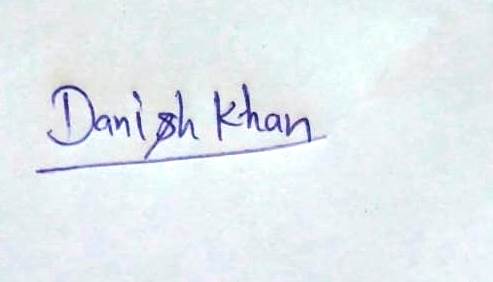 Danish Khan